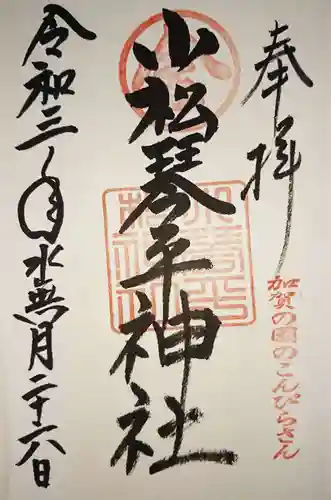 奉拝
加賀の國のこんぴらさん
小松琴平神社
令和三年水無月二十六日